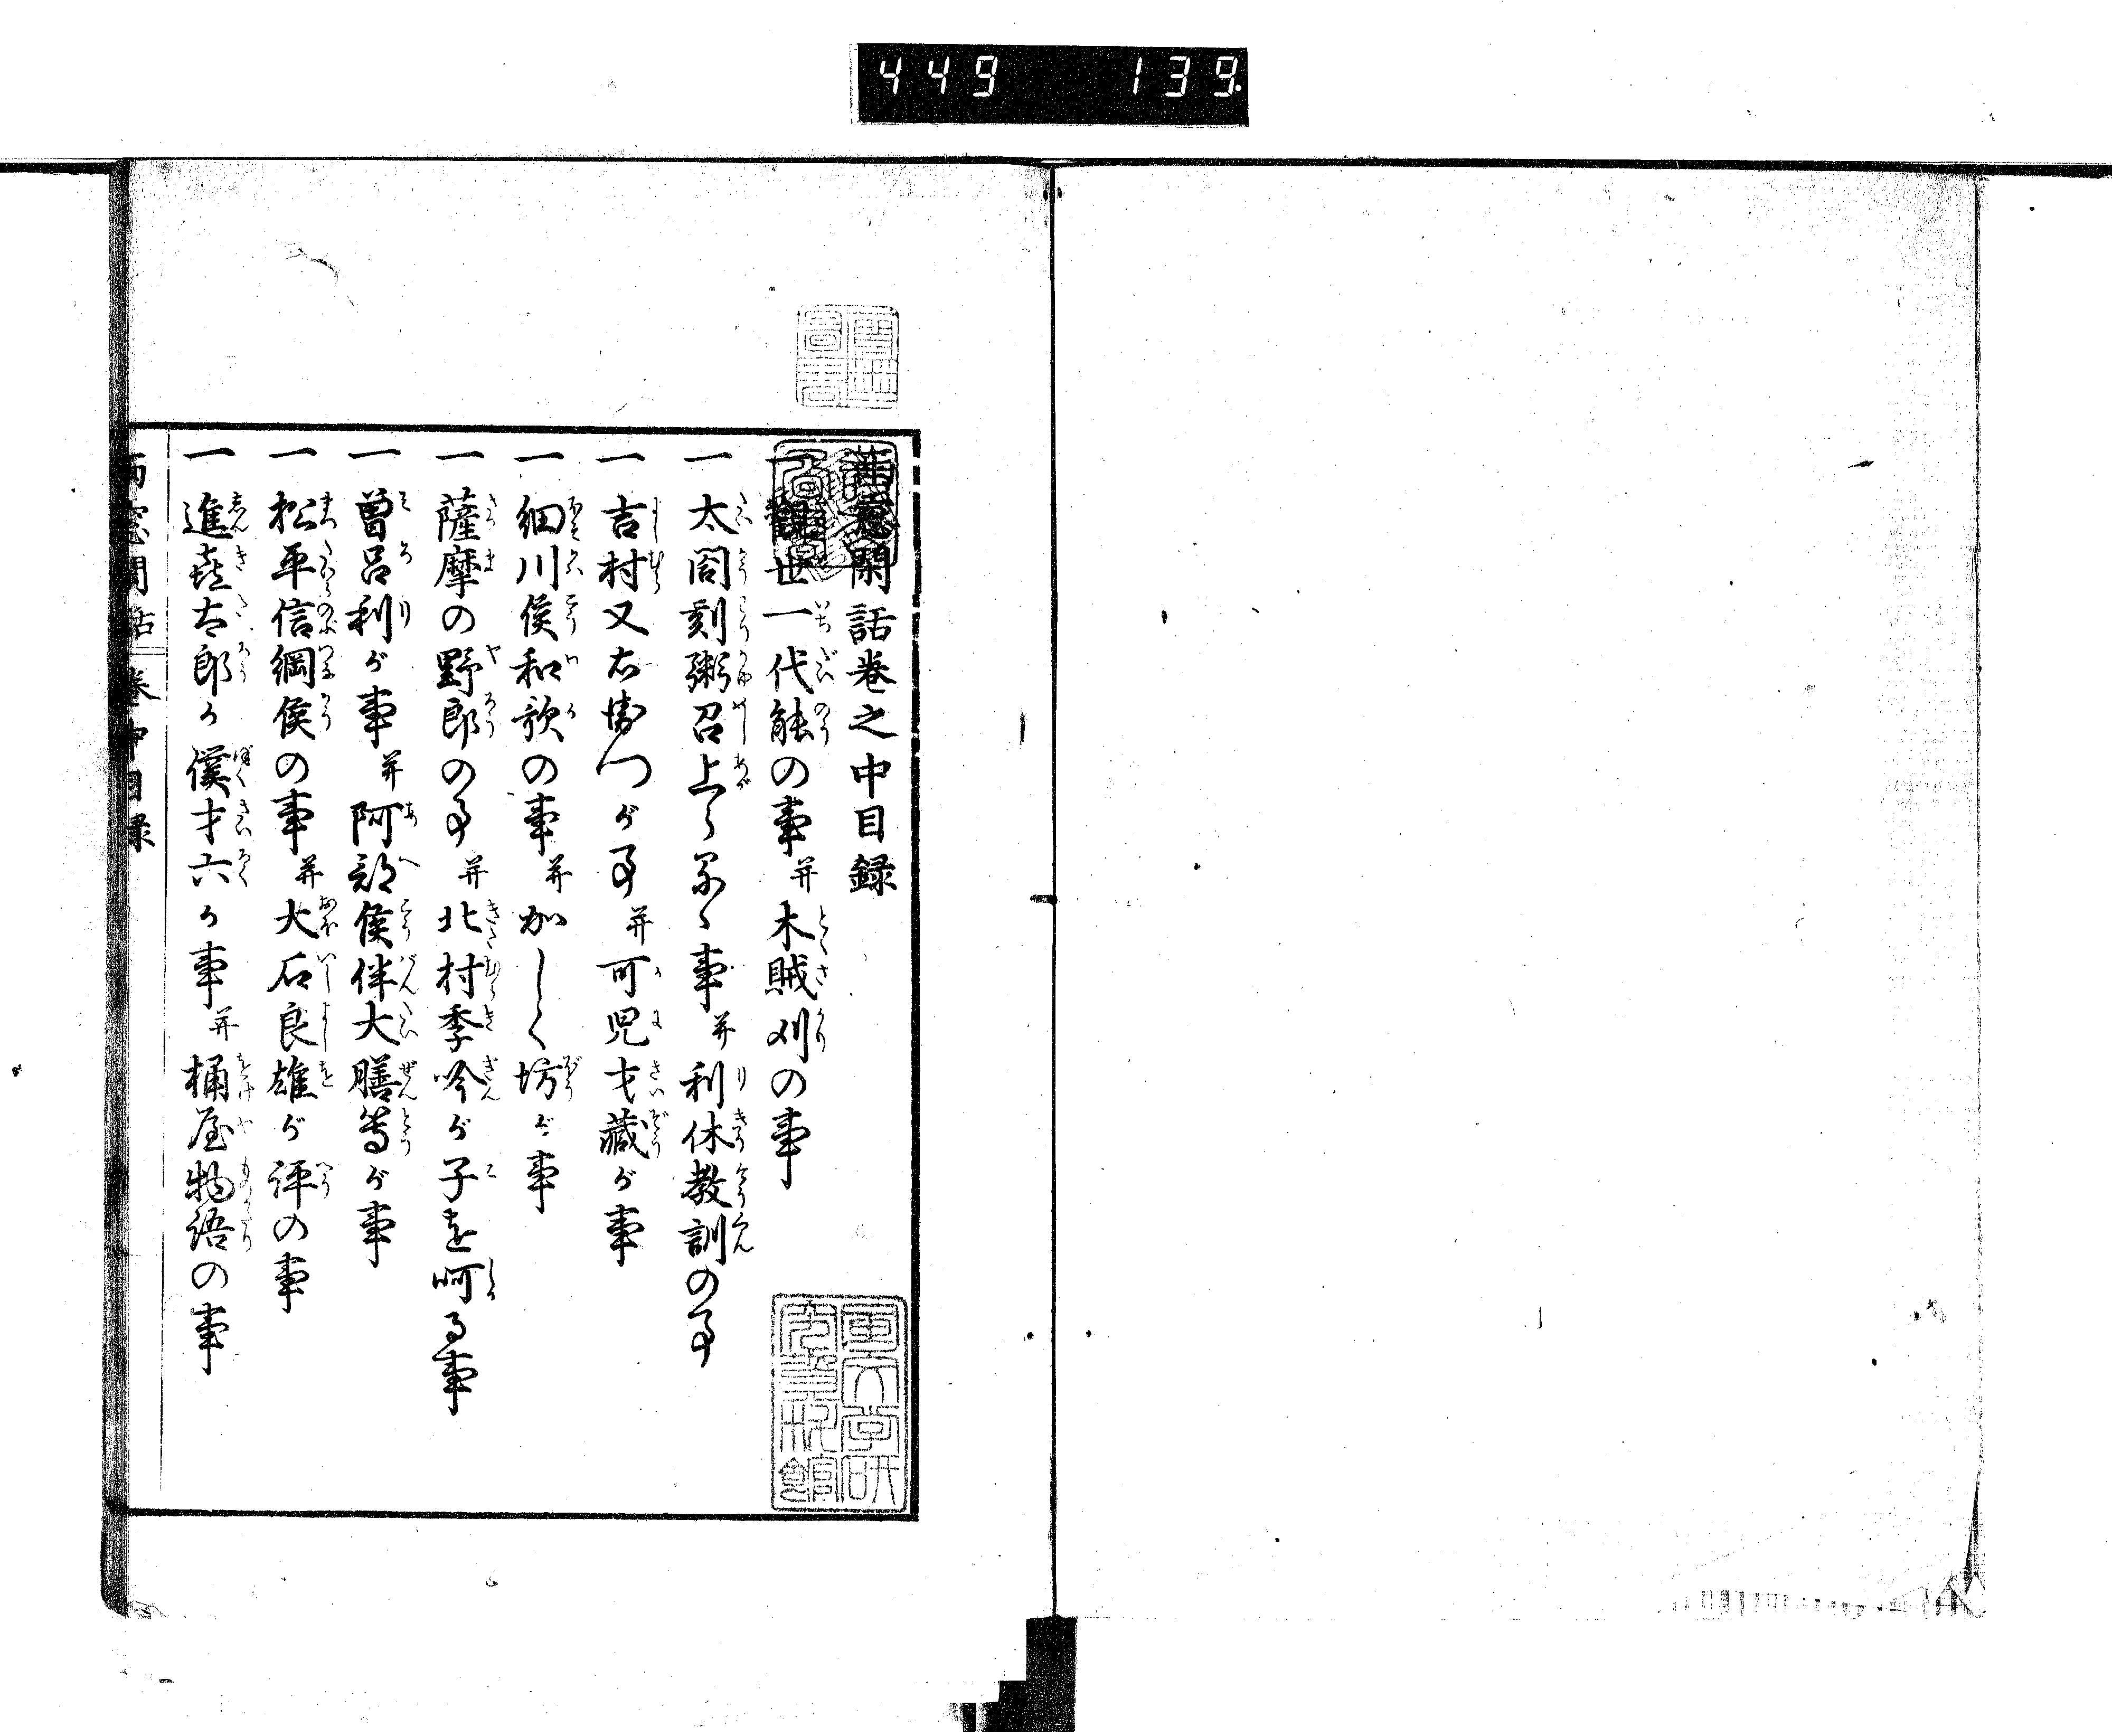 449 139
茜窓閑話巻之中目録
一観世一代能の事并木賊刈の事
一太閤割粥召上らるゝ事并利休教訓の事
一吉村又右衛門が事并可児才蔵が事
一細川侯和歌の事并かしく坊が事
一薩摩の野郎の事并北村季吟が子を呵る事
一曽呂利が事并阿部侯伴大膳等が事
一松平信綱侯の事并大石良雄が評の事
一進喜太郎が僕才六が事并桶屋物語の事
窓閑話 巻中目録
国文学研究資料館